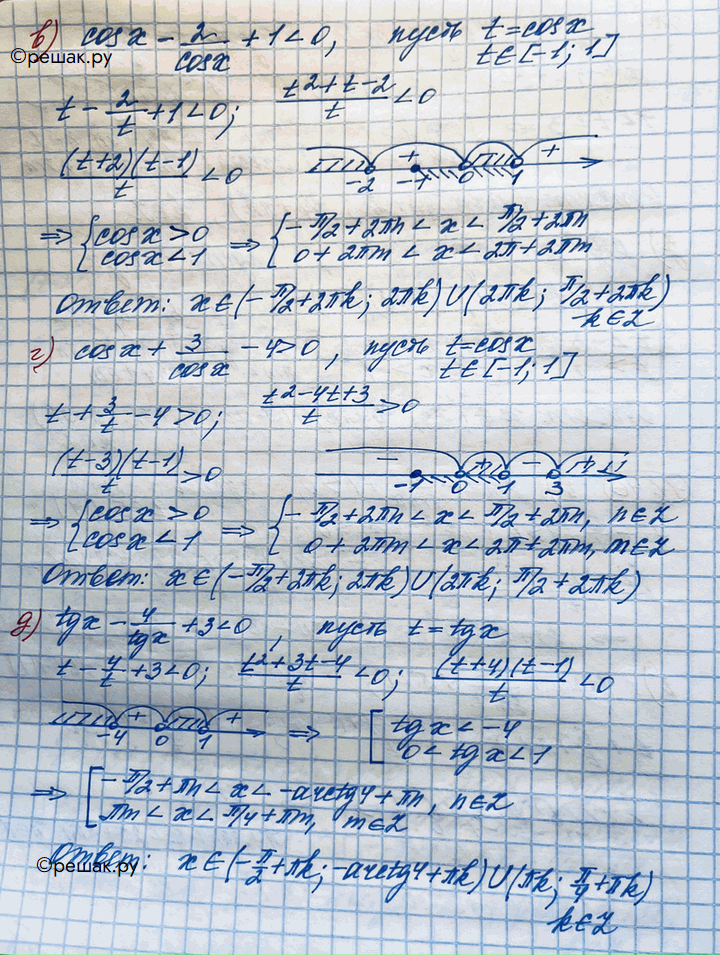 в) cosx - 2/cosx + 1 < 0, пусть t = cosx
t ∈ [-1; 1]
©решак.ру
t - 2/t + 1 < 0; (t² + t - 2)/t < 0
(t+2)(t-1)/t < 0
+ +
-2 -1 0 1
⇒ { cosx > 0 ⇒ { -π/2 + 2πn < x < π/2 + 2πn
cosx < 1 0 + 2πm < x < 2π + 2πm
Ответ: x ∈ (-π/2 + 2πk; 2πk) ∪ (2πk; π/2 + 2πk)
k ∈ Z
г) cosx + 3/cosx - 4 > 0, пусть t = cosx
t ∈ [-1; 1]
t + 3/t - 4 > 0; (t² - 4t + 3)/t > 0
(t-3)(t-1)/t > 0
- + - +
-1 0 1 3
⇒ { cosx > 0 ⇒ { -π/2 + 2πn < x < π/2 + 2πn, n ∈ Z
cosx < 1 0 + 2πm < x < 2π + 2πm, m ∈ Z
Ответ: x ∈ (-π/2 + 2πk; 2πk) ∪ (2πk; π/2 + 2πk)
д) tgx - 4/tgx + 3 < 0, пусть t = tgx
t - 4/t + 3 < 0; (t² + 3t - 4)/t < 0; (t+4)(t-1)/t < 0
+ +
-4 0 1
⇒ [ tgx < -4
0 < tgx < 1
⇒ [ -π/2 + πn < x < -arctg4 + πn, n ∈ Z
πm < x < π/4 + πm, m ∈ Z
Ответ: x ∈ (-π/2 + πk; -arctg4 + πk) ∪ (πk; π/4 + πk)
©решак.ру
k ∈ Z